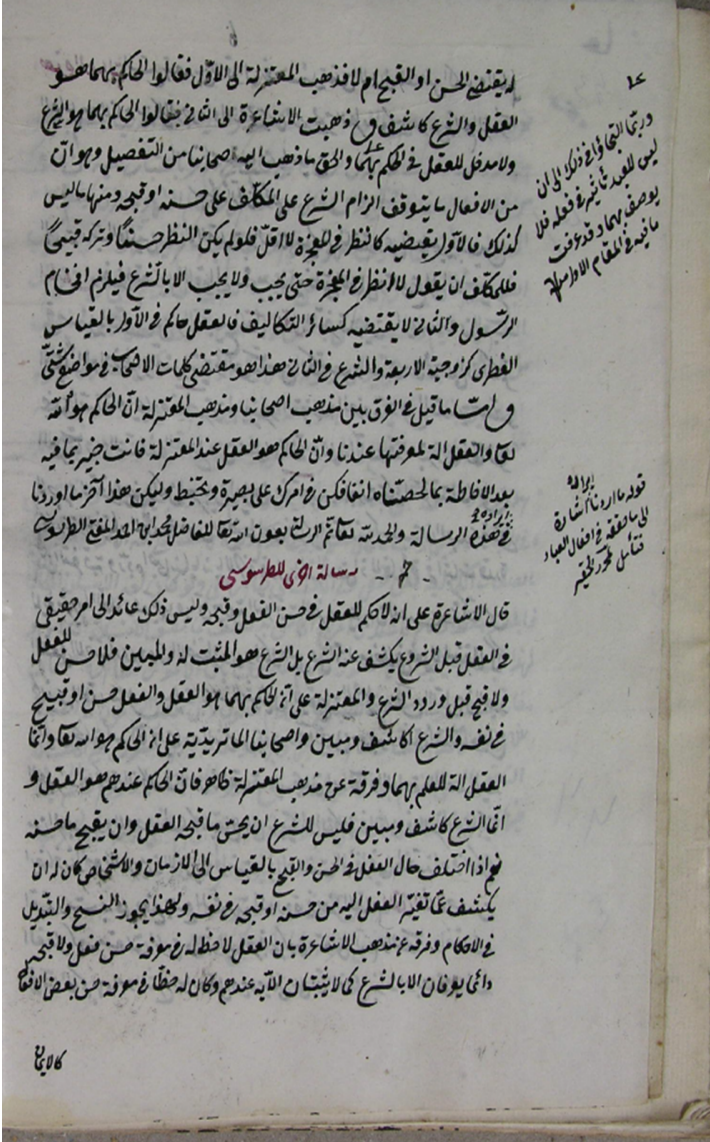 له يقتضي الحسن او القبح ام لا فذهب المعتزلة الى الاول فقالوا الحاكم بهما هو
العقل والشرع كاشف و ذهبت الاشاعرة الى الثاني فقالوا الحاكم بهما هو الشرع
ولا مدخل للعقل في الحكم بهما والحق ما ذهب اليه اصحابنا من التفصيل وهو ان
من الافعال ما يتوقف الزام الشرع على المكلف على حسنه او قبحه ومنها ما ليس
كذلك فالاول يقتضيه كالنظر في المعجزة لا اقل فلو لم يكن النظر حسنا وتركه قبيحا
فللمكلف ان يقول لا انظر في المعجزة حتى يجب ولا يجب الا بالشرع فيلزم افحام
الرسول والثاني لا يقتضيه كسائر التكاليف فالعقل حاكم في الاول بالقياس
الفطري كزوجية الاربعة والشرع في الثاني هذا هو مقتضى كلمات الاصحاب في مواضع شتى
و اما ما قيل في الفرق بين مذهب اصحابنا ومذهب المعتزلة ان الحاكم هو الله
تعا والعقل الة لمعرفتها عندنا وان الحاكم هو العقل عند المعتزلة فانت خبير بما فيه
بعد الاحاطة بما لخصناه انفا فكن في امرك على بصيرة وتحفظ وليكن هذا آخر ما اوردنا
ايراده في هذه الرسالة والحمد لله تعا تم الرسالة بعون الله تعا للفاضل محمد ابن احمد المفتي الطرسوسي
رسالة اخرى للطرسوسي
قال الاشاعرة على انه لا حكم للعقل في حسن الفعل وقبحه وليس ذلك عائد الى امر حقيقي
في العقل قبل الشرع يكشف عنه الشرع بل الشرع هو المثبت له والمبين فلا حسن للفعل
ولا قبح قبل ورود الشرع والمعتزلة على ان الحاكم بهما هو العقل والفعل حسن او قبيح
في نفسه والشرع كاشف ومبين واصحابنا الماتريدية على ان الحاكم هو الله تعا وانما
العقل الة للعلم بهما وفرقه عن مذهب المعتزلة ظاهر فان الحاكم عندهم هو العقل و
انما الشرع كاشف ومبين فليس للشرع ان يحسن ما قبحه العقل وان يقبح ما حسنه
نعم اذا اختلف حال الفعل في الحسن والقبح بالقياس الى الازمان والاشخاص كان له ان
يكشف عما تغير الفعل اليه من حسنه او قبحه في نفسه ولهذا يجوز النسخ والتبديل
في الاحكام وفرقه عن مذهب الاشاعرة بان العقل لا حظ له في معرفة حسن فعل ولا قبحه
وانما يعرفان الا بالشرع كما لا يثبتان الا به عندهم وكان له حظا في معرفة حسن بعض الافعال
كالايمان
وربما التجاؤا في ذلك الى ان
ليس للعبد تأثير في فعله فلا
يوصف بهما وقد عرفت
ما فيه في المقام الاول
قوله ما اردنا ايراده اشارة
الى ما حققه في افعال العباد
فتأمل